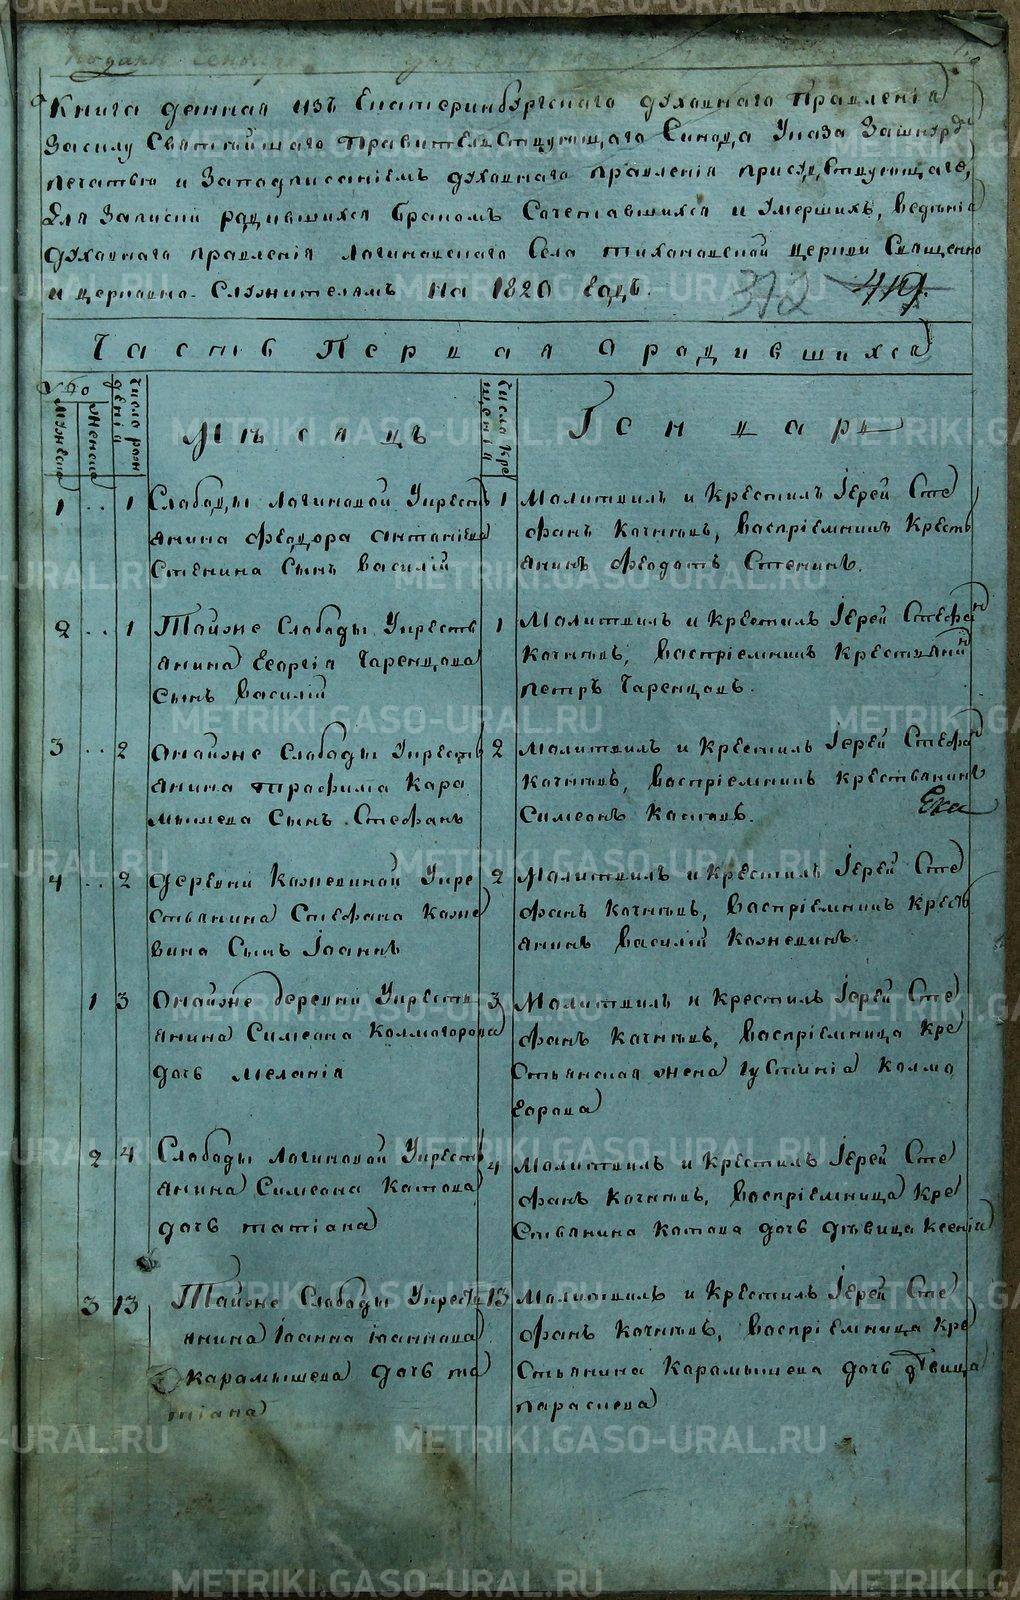 Книга данная изъ Екатеринбургскаго духовнаго Правленія
Засилу Святѣйшаго Правительствующаго Синода Указа Зашнуро
печатью и Заподписаніемъ духовнаго правленія присудствующаго,
Для Записки радившихся бракомъ Сочетавшихся и умершихъ, ведѣнія
духовнаго правленія Логиновскаго Села Тихоновской церкви Священно
и церковно-Служителямъ на 1820 годъ. 372 419.
Часть Первая Орадившихся
Число рож
денія
Мужеска
Женска
Мѣсяцъ
Число Кре
щенія
Генварь
1 .. 1 Слабоды Логиновой Укресть
янина Феодора Антоніева
Стенина Сынъ Василій
1 Молитвилъ и Крестилъ Іерей Сте
фанъ Кочневъ, Воспріемникъ Кресть
янинъ Феодотъ Стенинъ.
2 .. 1 Тойже Слабоды Укресть
янина Георгія Чаренцова
Сынъ Василій
1 Молитвилъ и Крестилъ Іерей Стефан
Кочневъ, Воспріемникъ Крестьянин
Петръ Чаренцовъ.
3 .. 2 Онойже Слабоды Укресть
янина Трофима Кара
мышева Сынъ Стефанъ
2 Молитвилъ и Крестилъ Іерей Стефан
Кочневъ, Воспріемникъ Крестьянинъ
Симеонъ Катовъ.
Ека
4 .. 2 Деревни Кожевиной Укре
стьянина Стефана Коже
вина Сынъ Іоаннъ
2 Молитвилъ и Крестилъ Іерей Сте
фанъ Кочневъ, Воспріемникъ Кресть
янинъ Василій Кожевинъ.
1 3 Онойже деревни Укресть
янина Симеона Колмогорова
дочь Меланія
3 Молитвилъ и Крестилъ Іерей Сте
фанъ Кочневъ, Воспріемница Кре
стьянская жена Іустинія Колмо
горова
2 4 Слабоды Логиновой Укресть
янина Симеона Катова
дочь Татіана
4 Молитвилъ и Крестилъ Іерей Сте
фанъ Кочневъ, Воспріемница Кре
стьянина Катова дочь дѣвица Ксенія
3 13 Тойже Слабоды Укресть
янина Іоанна Іоаннова
Карамышева дочь та
тіана
13 Молитвилъ и Крестилъ Іерей Сте
фанъ Кочневъ, Воспріемница Кре
стьянина Карамышева дочь дѣвица
Парасиева
METRIKI.GASO-URAL.RU